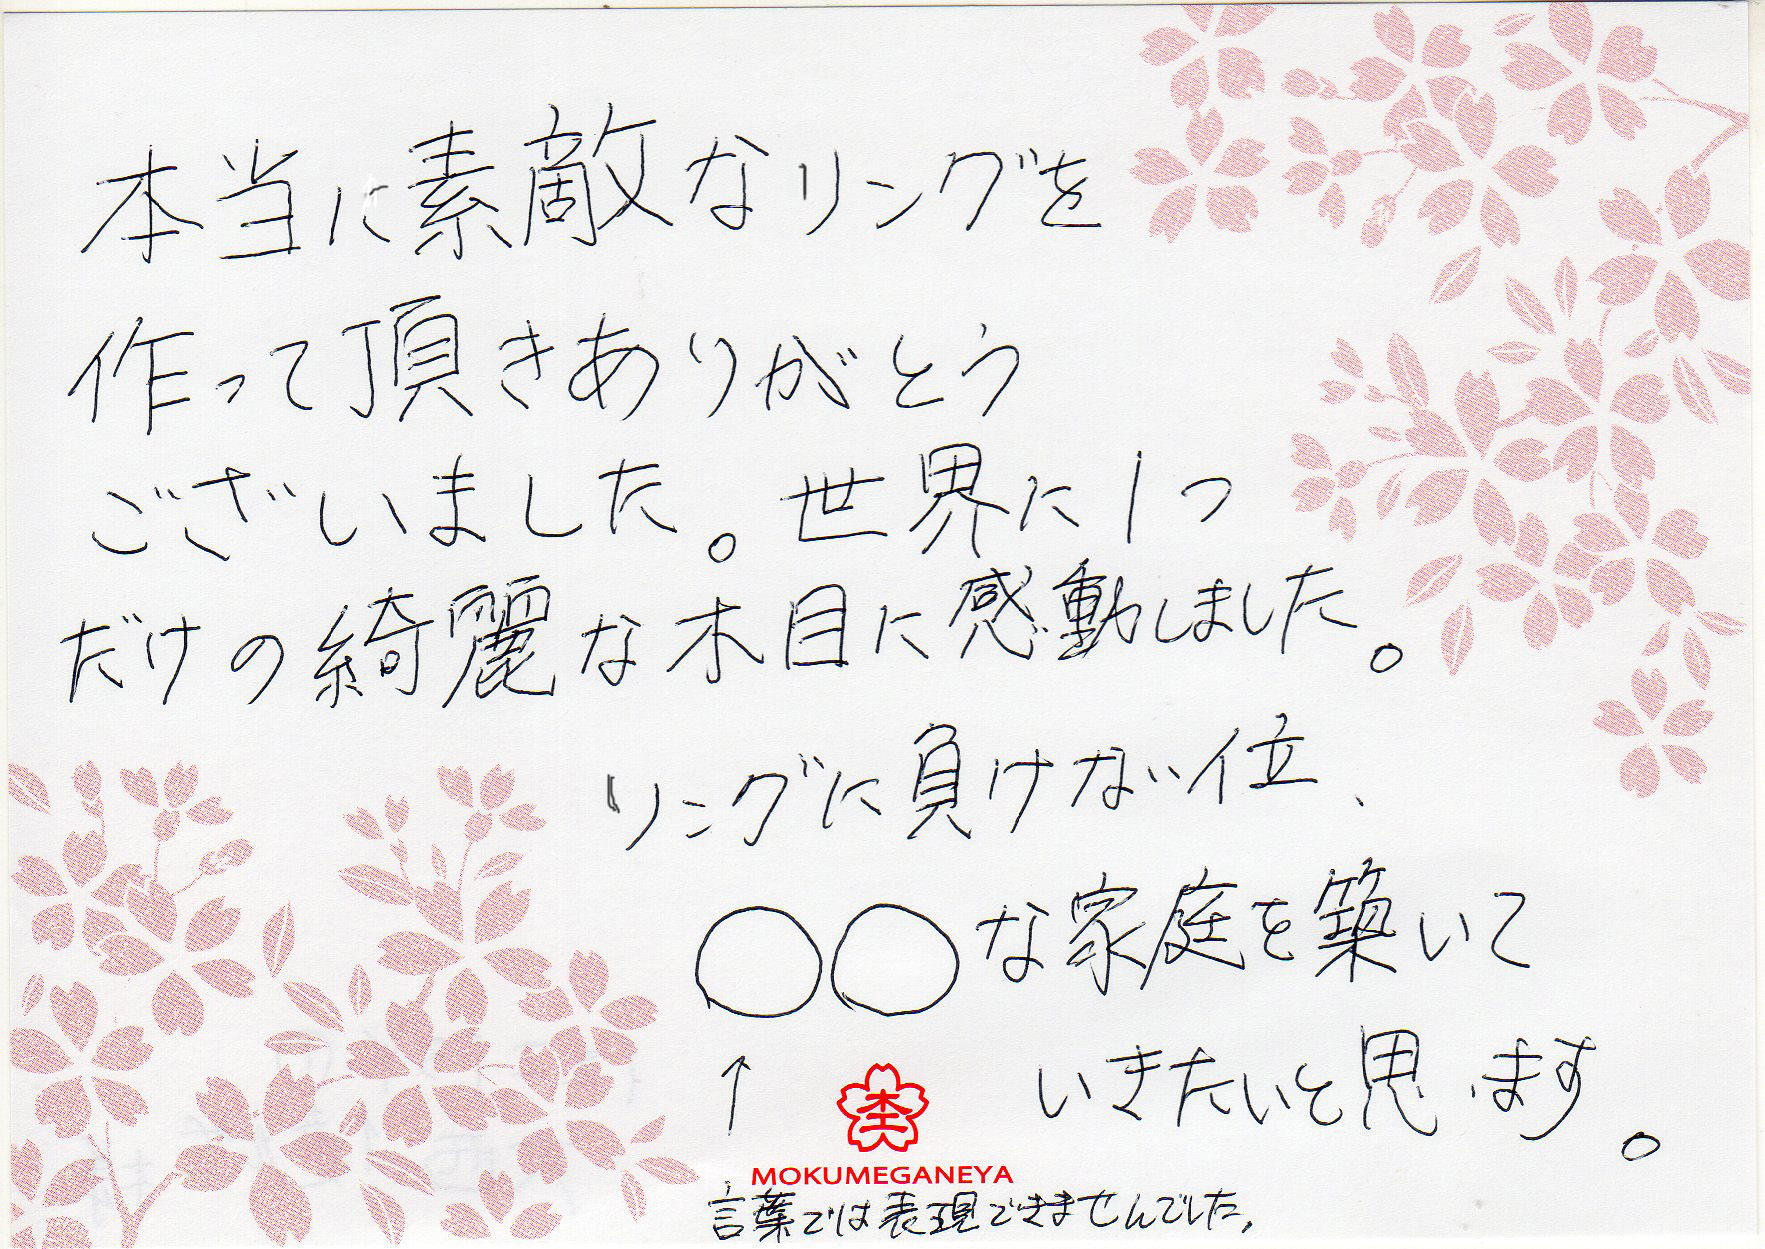 本当に素敵なリングを
作って頂きありがとう
ございました。世界に1つ
だけの綺麗な木目に感動しました。
リングに負けない位、
○○な家庭を築いて
↑
いきたいと思います。
MOKUMEGANEYA
言葉では表現できませんでした。